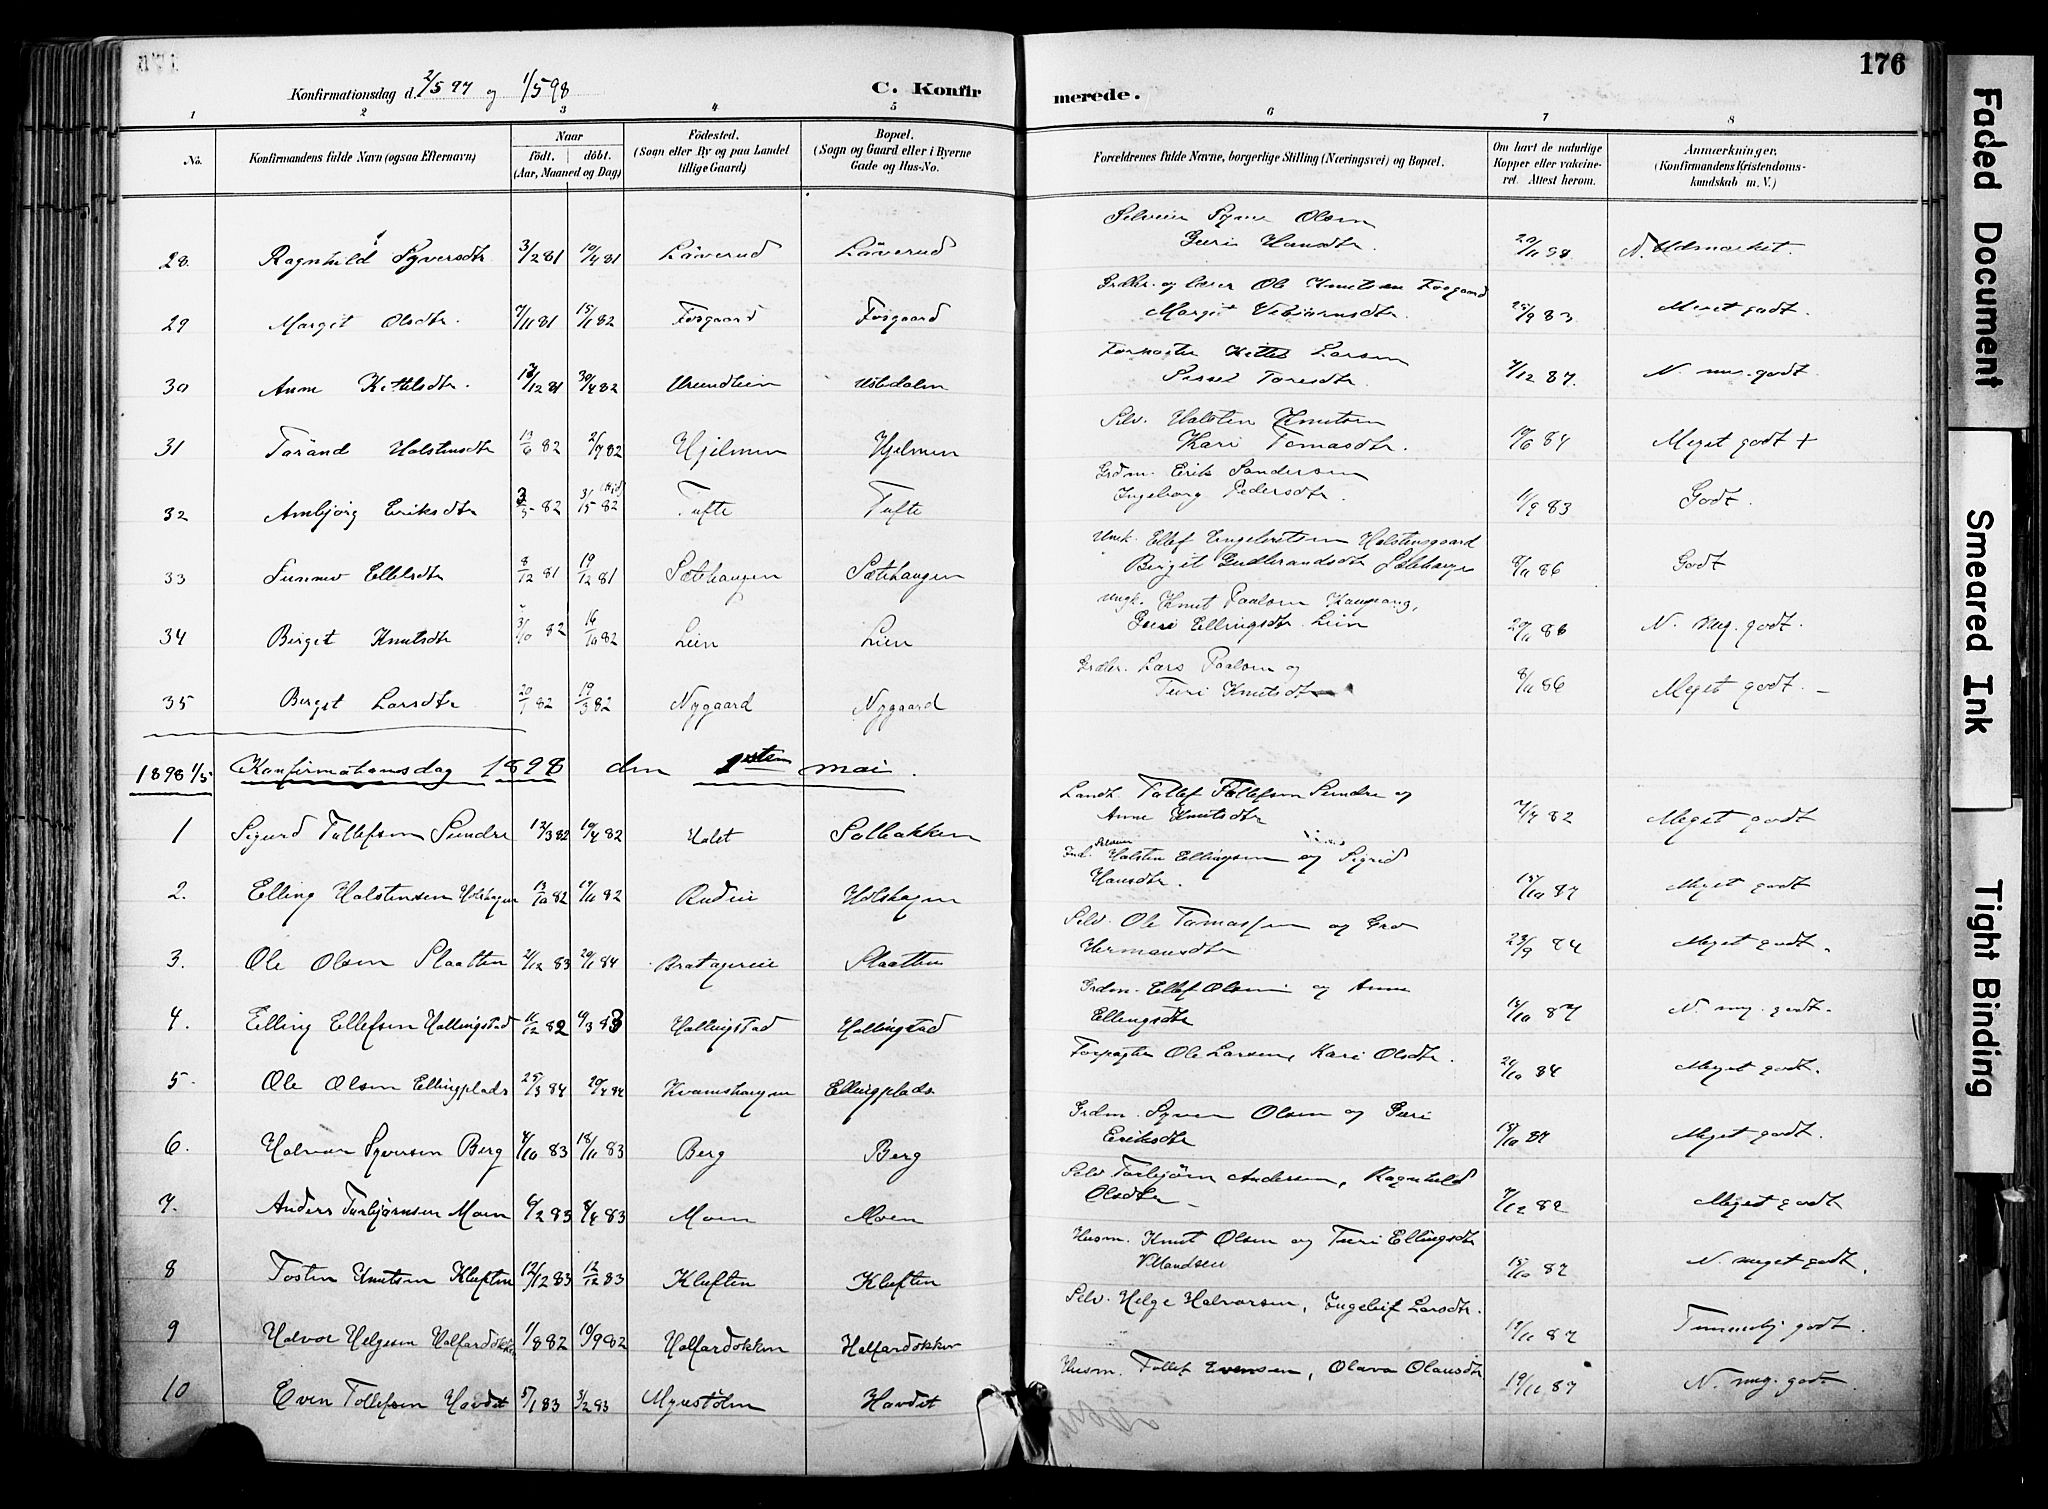 176
Konfirmationsdag d. 2/5 97 og 1/5 98
C. Konfirmerede.
1 2 3 4 5 6 7 8
No.
Konfirmandens fulde Navn (ogsaa Efternavn)
Naar
födt. döbt.
(Aar, Maaned og Dag)
Födested.
(Sogn eller By og paa Landet tillige Gaard)
Bopæl.
(Sogn og Gaard eller i Byerne Gade og Hus-No.
Forældrenes fulde Navne, borgerlige Stilling (Næringsvei) og Bopæl.
Om havt de naturlige Kopper eller vakcineret. Attest herom.
Anmærkninger,
(Konfirmandens Kristendomskundskab m. V.)
28. Ragnhild Syversdtr 3/2 81 10/4 81 Låverud Låverud Olsen Guri Hansdtr. N. Udmærket.
29 Margit Olsdtr. 7/11 81 15/1 82 Fosgaard Fosgaard Grdbr. og lærer Ole Knutsen Fosgaard Margit 25/9 83 Meget godt.
30 Anne Kittelsdtr. 12 81 30/4 82 Forpagter Kittel Larsen Sissel Toresdtr. 7/12 87. N. meg. godt.
31 Tarand Halstensdtr 13/6 82 2/7 82 Hjelmen Hjelmen Selv. Halsten Knutsen Kari Tomasdtr. 10/6 84 Meget godt +
32 Ambjørg Eriksdtr 3/5 82 Tufte Tufte Grdm. Erik Sandersen Ingeborg Pedersdtr. 1/9 83 Godt.
33 Sunnev Ellefsdtr 8/12 81 19/12 81 Sætehaugen Sætehaugen Ungk. Ellef Engebretsen Halstensgaard Birgit Gudbrandsdtr 8/11 86 Godt
34 Birget Knutsdtr 3/10 82 16/10 82 Lien Lien Ungk. Knut Paalsen Kaupang, Guri Ellingsdtr Lien 20/11 86 N. meg. godt.
35 Birget Larsdtr 20/1 82 19/3 82 Nygaard Nygaard Grdbr. Lars Paalsen og Turi Knutsdtr 8/11 86 Meget godt. –
1898 1/5 Konfirmationsdag 1898 den 1sten mai.
1 Sigurd Tollefsen Sundre 12/3 82 10/4 82 Holet Solbakken Landh. Tollef Tollefsen Sundre og Anne Knutsdtr 7/7 82 Meget godt
2. Elling Halstensen Holshagen 13/10 82 19/11 82 Rudiie Holshagen Halsten Ellingsen og Sigrid Hansdtr. 15/10 87 Meget godt
3. Ole Olsen Slaatten 21/12 83 20/1 84 Slaatten Selv. Ole Tomassen og Gro Hermansdtr 23/9 84 Meget godt.
4. Elling Ellefsen Hallingstad 11/12 82 4/3 83 Hallingstad Hallingstad Grdm. Ellef Olsen og Anne Ellingsdtr 15/10 87 N. meg. godt.
5. Ole Olsen Ellingplads 25/3 84 20/4 84 Kvamshaugen Ellingplads Forpagter Ole Larsen, Kari Olsdtr. 20/10 84 Meget godt.
6. Halvor Syversen Berg 4/10 83 18/11 83 Berg Berg Grdm. Syver Olsen og Guri Eriksdtr 15/10 87 Meget godt.
7. Anders Torbjørnsen Moen 6/2 83 8/4 83 Moen Moen Selv Torbjørn Andersen, Ragnhild Olsdtr – 7/12 82 Meget godt
8 Tosten Knutsen Kluften 12/12 83 Kluften Kluften Husm. Knut Olsen og Turi Ellingsdtr 15/10 87 N. meget godt.
9 Halvor Helgesen Halfardokken 1/8 82 10/9 82 Halfardokken Halfardokken Selv. Helge Halvorsen, Ingeleif Larsdtr. 19/11 87 Temmelig godt.
10 Even Tollefsen Havdet 5/1 83 3/2 83 Myrestølen Havdet Husm. Tollef Evensen, Olava Olausdtr 19/11 87 N. meg. godt.
Faded Document
Smeared Ink
Tight Binding